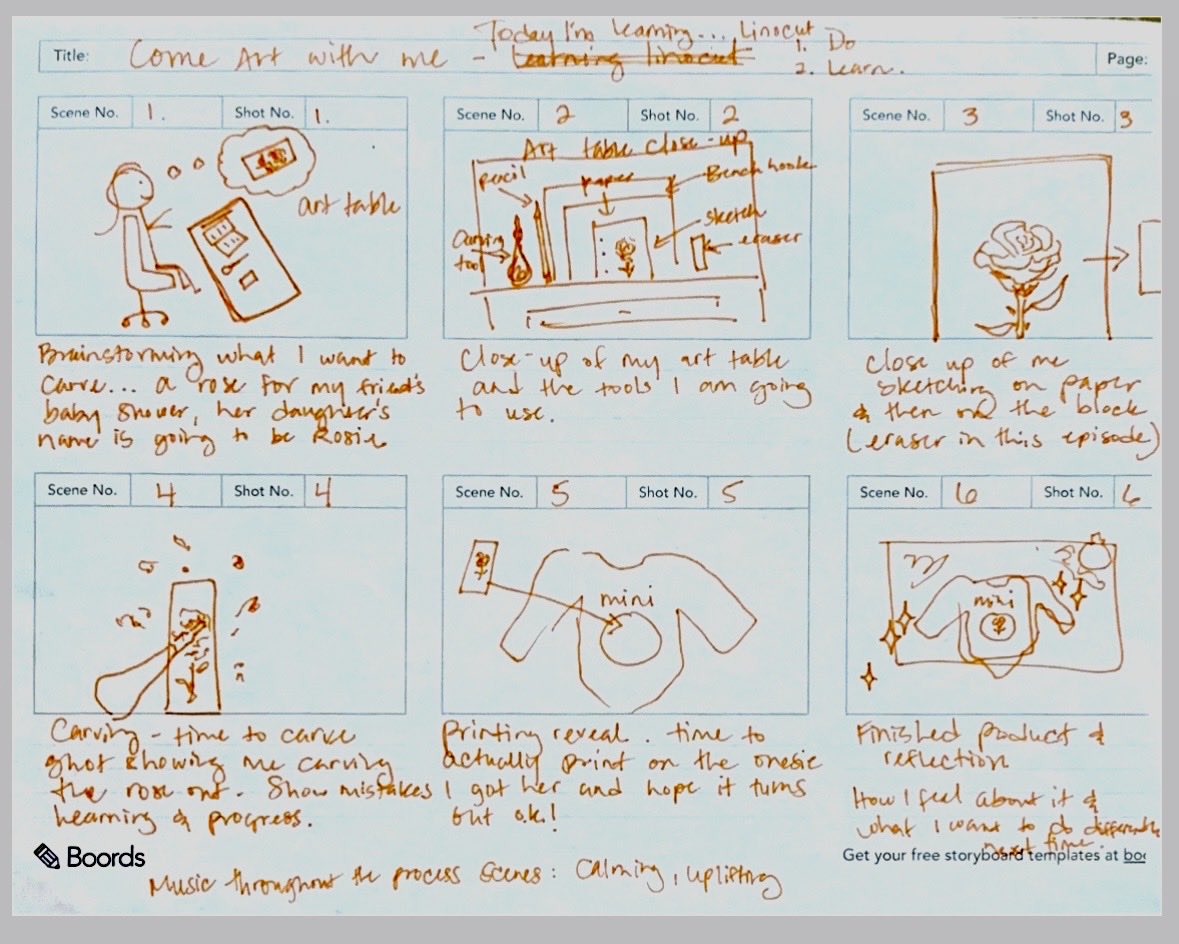 Today I'm learning... Linocut
Title: Come Art with me - learning linocut
1. Do
2. Learn.
Page:
Scene No. 1. Shot No. 1.
art table
Brainstorming what I want to
carve... a rose for my friend's
baby shower, her daughter's
name is going to be Rosie
Scene No. 2 Shot No. 2
Art table close-up
pencil
paper
Bench hook
sketch
Carving
tool
eraser
Close-up of my art table
and the tools I am going
to use.
Scene No. 3 Shot No. 3
Close up of me
sketching on paper
& then on the block
(eraser in this episode)
Scene No. 4 Shot No. 4
Carving - time to carve
shot showing me carving
the rose out. Show mistakes
learning & progress.
Scene No. 5 Shot No. 5
mini
Printing reveal. time to
actually print on the onesie
I got her and hope it turns
out o.k.!
Scene No. 6 Shot No. 6
mini
Finished product &
reflection
How I feel about it &
what I want to do differently
next time.
Boords
Get your free storyboard templates at boo
Music throughout the process scenes: Calming, uplifting